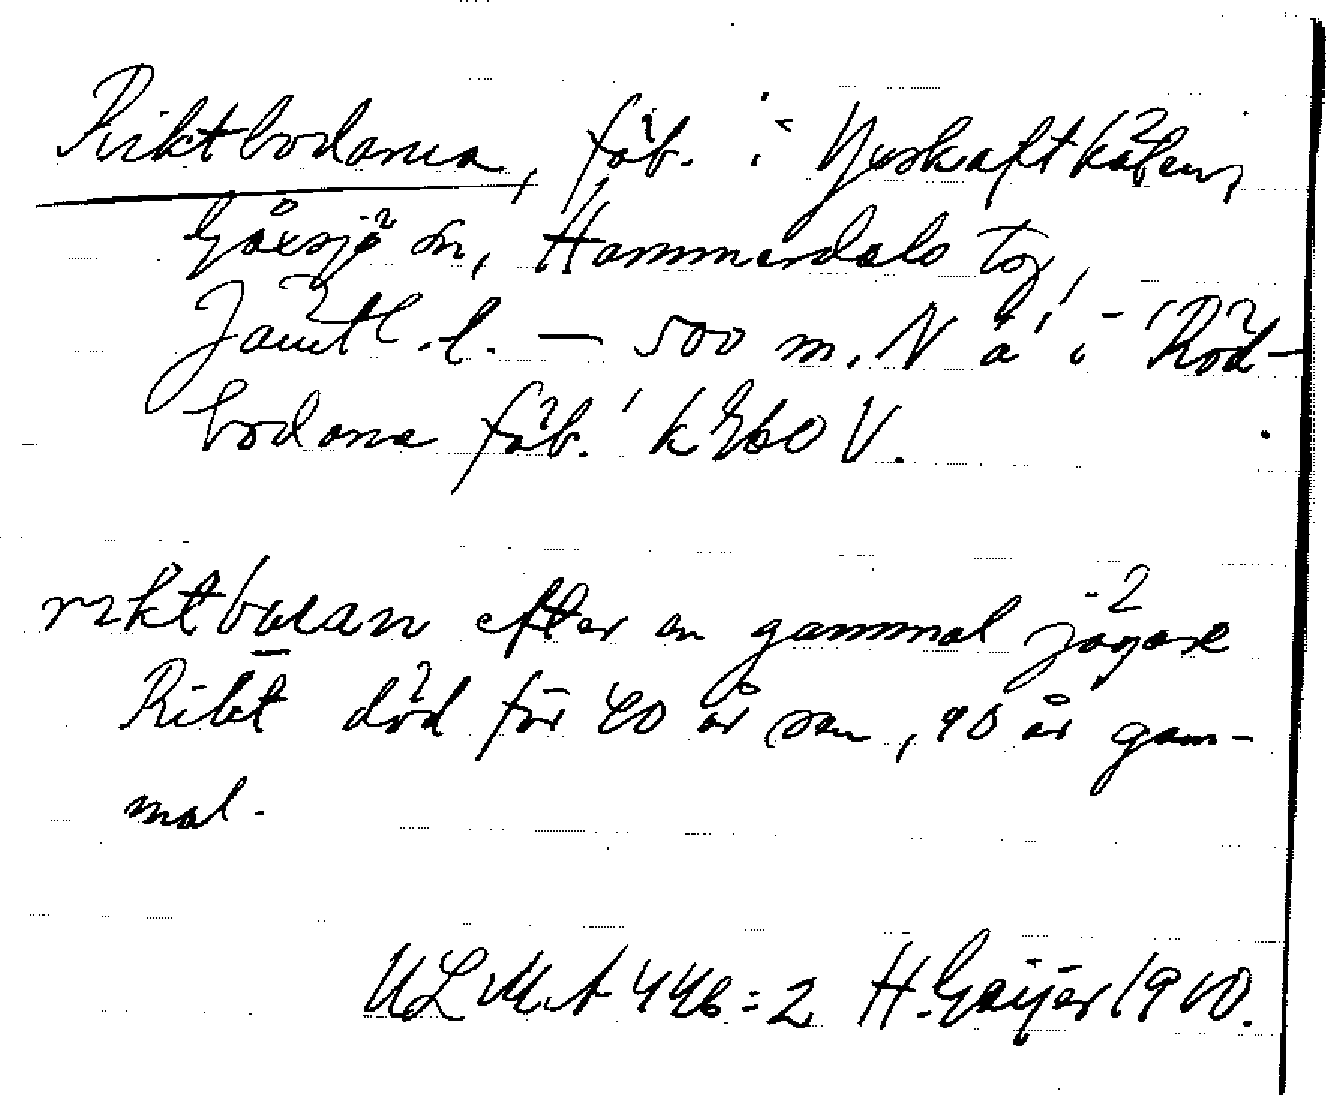 Riktbodarna, fäb. i Yxskaftkälen,
Gåxsjö sn, Hammerdals tg,
Jämtl. l. — 500 m. N å i Röd-
bodarna fäb. k 260 V.
efter en gammal jägare
Rikt död för 40 år sen, 90 år gam-
mal.
ULMA 446:2 H. Geijer 1910.